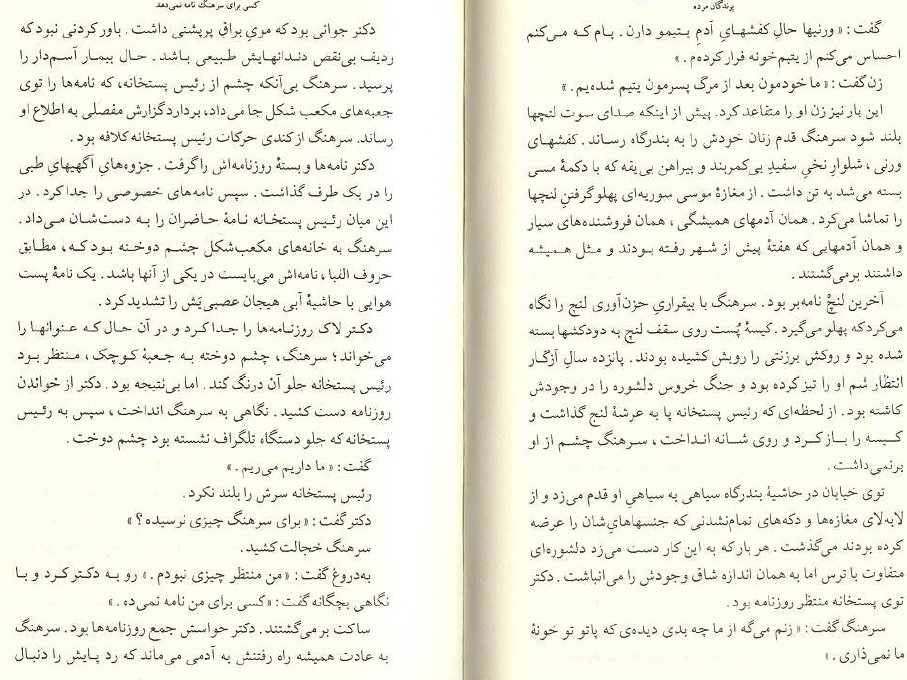 پرندگان مرده
گفت: «ورنیها حالِ کفشهایِ آدمِ یتیمو دارن. پام که می‌کنم
احساس می‌کنم از یتیم‌خونه فرار کرده‌م.»
زن گفت: «ما خودمون بعد از مرگ پسرمون یتیم شده‌یم.»
این بار نیز زن او را متقاعد کرد. پیش از اینکه صدای سوت لنچها
بلند شود سرهنگ قدم زنان خودش را به بندرگاه رساند. کفشهای
ورنی، شلوارِ نخیِ سفیدِ بی‌کمربند و پیراهن بی‌یقه که با دکمهٔ مسی
بسته می‌شد به تن داشت. از مغازهٔ موسی سوریه‌ای پهلو گرفتنِ لنچها
را تماشا می‌کرد. همان آدمهای همیشگی، همان فروشنده‌های سیار
و همان آدمهایی که هفتهٔ پیش از شهر رفته بودند و مثل همیشه
داشتند برمی‌گشتند.
آخرین لنچْ نامه‌بر بود. سرهنگ با بیقراریِ حزن‌آوری لنج را نگاه
می‌کرد که پهلو می‌گیرد. کیسهٔ پُست روی سقف لنچ به دودکشها بسته
شده بود و روکش برزنتی را رویش کشیده بودند. پانزده سالِ آزگار
انتظار شَم او را تیز کرده بود و جنگ خروس دلشوره را در وجودش
کاشته بود. از لحظه‌ای که رئیس پستخانه پا به عرشهٔ لنج گذاشت و
کیسه را باز کرد و روی شانه انداخت، سرهنگ چشم از او
برنمی‌داشت.
توی خیابان در حاشیهٔ بندرگاه سیاهی به سیاهیِ او قدم می‌زد و از
لابه‌لای مغازه‌ها و دکه‌های تمام‌نشدنی که جنسهایِ‌شان را عرضه
کرده بودند می‌گذشت. هر بار که به این کار دست می‌زد دلشوره‌ای
متفاوت با ترس اما به همان اندازه شاق وجودش را می‌انباشت. دکتر
توی پستخانه منتظر روزنامه بود.
سرهنگ گفت: «زنم می‌گه از ما چه بدی دیده‌ی که پاتو تو خونهٔ
ما نمی‌ذاری.»
کسی برای سرهنگ نامه نمی‌دهد
دکتر جوانی بود که مویِ براقِ پرپشتی داشت. باور کردنی نبود که
ردیف بی‌نقص دندانهایش طبیعی باشد. حال بیمار آسم‌دار را
پرسید. سرهنگ بی‌آنکه چشم از رئیس پستخانه، که نامه‌ها را توی
جعبه‌های مکعب شکل جا می‌داد، بردارد گزارش مفصلی به اطلاع او
رساند. سرهنگ از کندی حرکات رئیس پستخانه کلافه بود.
دکتر نامه‌ها و بستهٔ روزنامه‌اش را گرفت. جزوه‌هایِ آگهیهایِ طبی
را در یک طرف گذاشت. سپس نامه‌های خصوصی را جدا کرد. در
این میان رئیس پستخانه نامهٔ حاضران را به دست‌شان می‌داد.
سرهنگ به خانه‌های مکعب‌شکل چشم دوخته بود که، مطابق
حروف الفبا، نامه‌اش می‌بایست در یکی از آنها باشد. یک نامهٔ پست
هوایی با حاشیهٔ آبی هیجان عصبی‌یَش را تشدید کرد.
دکتر لاک روزنامه‌ها را جدا کرد و در آن حال که عنوانها را
می‌خواند؛ سرهنگ، چشم دوخته به جعبهٔ کوچک، منتظر بود
رئیس پستخانه جلو آن درنگ کند. اما بی‌نتیجه بود. دکتر از خواندن
روزنامه دست کشید. نگاهی به سرهنگ انداخت، سپس به رئیس
پستخانه که جلو دستگاه تلگراف نشسته بود چشم دوخت.
گفت: «ما داریم می‌ریم.»
رئیس پستخانه سرش را بلند نکرد.
دکتر گفت: «برای سرهنگ چیزی نرسیده؟»
سرهنگ خجالت کشید.
به‌دروغ گفت: «من منتظر چیزی نبودم.» رو به دکتر کرد و با
نگاهی بچگانه گفت: «کسی برای من نامه نمی‌ده.»
ساکت برمی‌گشتند. دکتر حواسش جمع روزنامه‌ها بود. سرهنگ
به عادت همیشه راه رفتنش به آدمی می‌ماند که رد پایش را دنبال